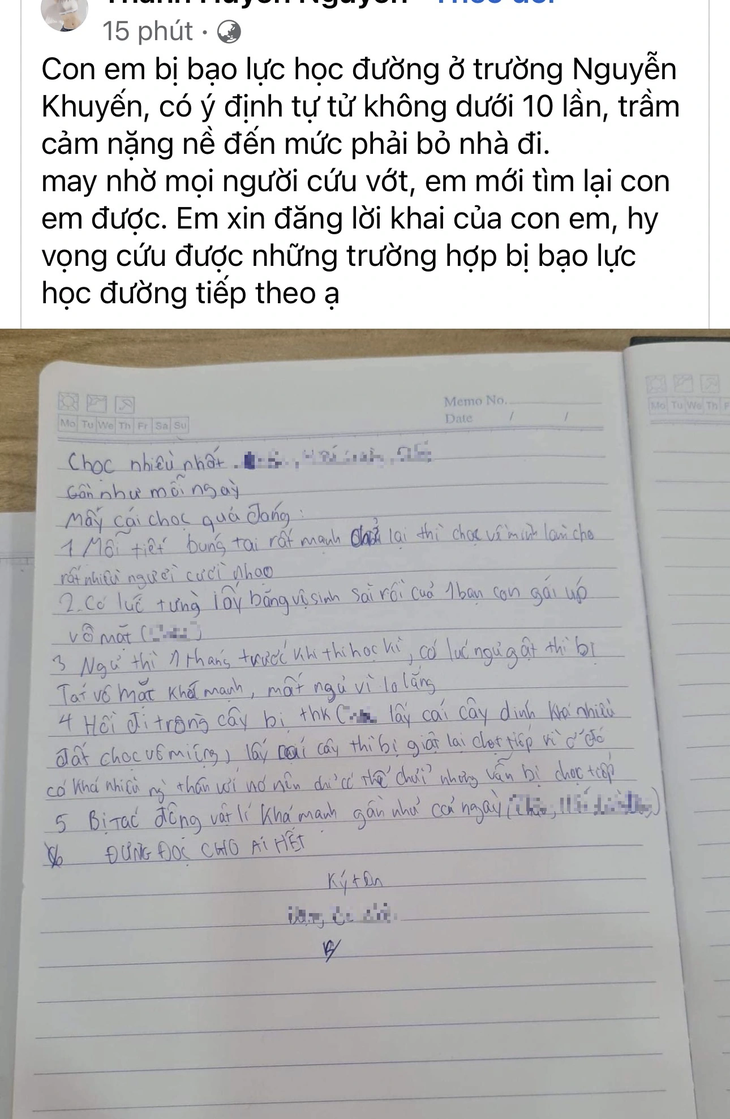 15 phút ·
Con em bị bạo lực học đường ở trường Nguyễn
Khuyến, có ý định tự tử không dưới 10 lần, trầm
cảm nặng nề đến mức phải bỏ nhà đi.
may nhờ mọi người cứu vớt, em mới tìm lại con
em được. Em xin đăng lời khai của con em, hy
vọng cứu được những trường hợp bị bạo lực
học đường tiếp theo ạ
Memo No.
Date / /
Mo Tu We Th Fr Sa Su
Mo Tu We Th F
Chọc nhiều nhất
Gần như mỗi ngày
Mấy cái chọc quá đáng:
1 Mỗi tiết búng tai rất mạnh lại thì chọc về mình làm cho
rất nhiều người cười nhạo
2. Có lúc từng lấy băng vệ sinh sài rồi của 1 bạn con gái úp
vô mặt
3 Ngủ thì 1 tháng trước khi thi học kì, có lúc ngủ gật thì bị
Tát vô mặt khá mạnh, mất ngủ vì lo lắng
4 Hồi đi trồng cây bị thk ( lấy cái cây dính khá nhiều
đất chọc vô miệng, lấy cái cây thì bị giật lại chọt tiếp vì ở đó
có khá nhiều ng thân với nó nên chỉ có thể chửi nhưng vẫn bị chọc tiếp
5 Bị tác động vật lí khá mạnh gần như cả ngày
6 ĐỪNG ĐỌC CHO AI HẾT
Ký tên